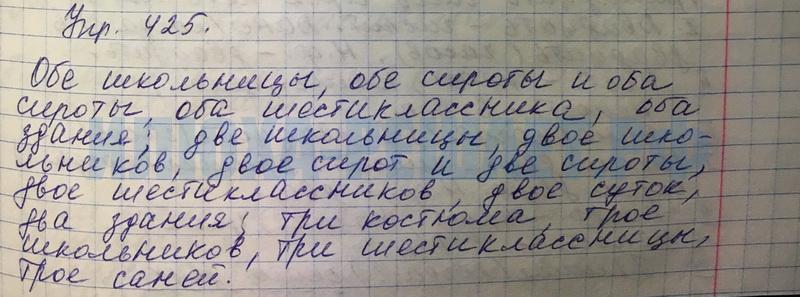 Упр. 425.
Обе школьницы, обе сироты и оба
сироты, оба шестиклассника, оба
здания; две школьницы, двое шко-
льников, двое сирот и две сироты,
двое шестиклассников, двое суток,
два здания; три костюма, трое
школьников, три шестиклассницы,
трое саней.